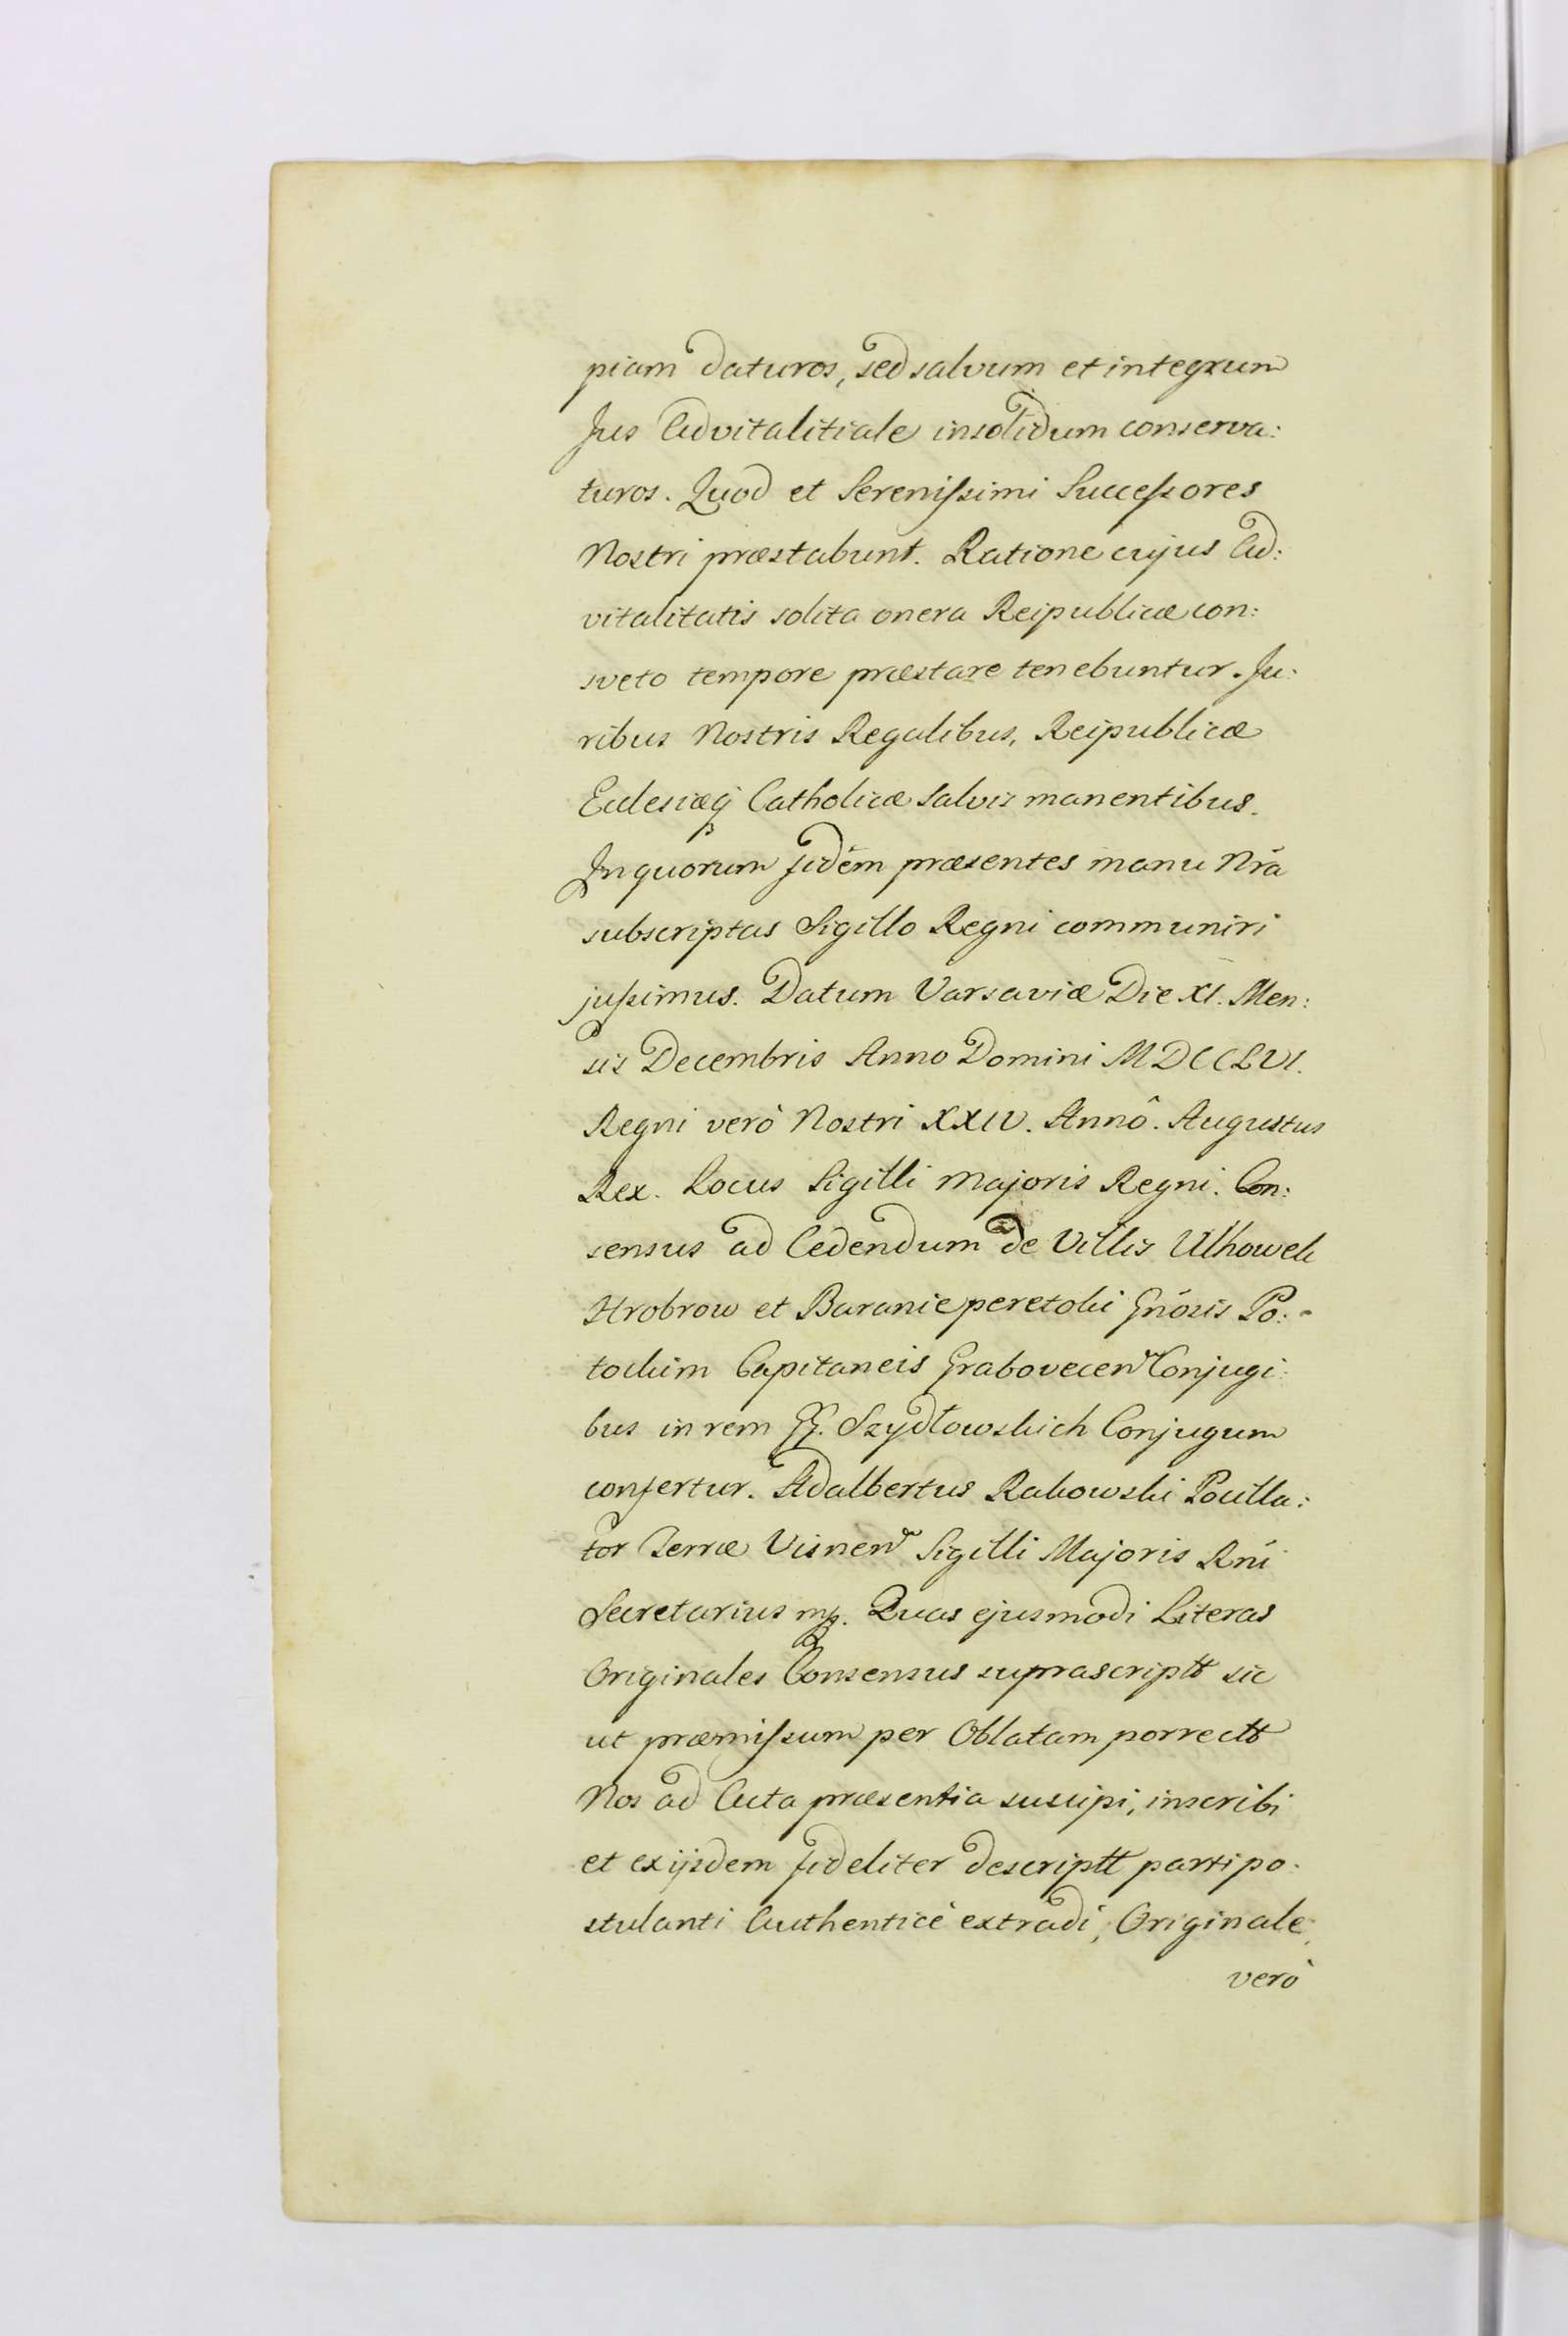 piam daturos, sed salvum et integrum
Jus Advitalitiale insolidum conserva:
turos. Quod et Serenissimi Successores
Nostri præstabunt. Ratione cujus Ad:
vitalitatis solita onera Reipublicæ con:
sveto tempore præstare tenebuntur. Ju:
ribus Nostris Regalibus, Reipublicæ
Eclesiæq́ Catholicæ salvis manentibus.
In quorum fidem præsentes manu Nrã
subscriptas Sigillo Regni communiri
jussimus. Datum Varsaviæ Die XI. Men:
sis Decembris Anno Domini MDCCLVI.
Regni verò Nostri XXIV. Annô. Augustus
Rex. Locus Sigilli Majoris Regni. Con:
sensus ad Cedendum de Villis Uhowek
Hrobrow et Baranieperetoki Gñosis Po:
tockim Capitaneis Grabovecen Conjugi:
bus in rem GG. Szydłowskich Conjugum
confertur. Adalbertus Rakowski Pocilla:
tor Terræ Visnen Sigilli Majoris Rñi
Secretarius mp. Quas ejusmodi Literas
Originales Consensus suprascriptt sic
ut præmissum per Oblatam porrectt
Nos ad Acta præsentia suscipi, inscribi
et ex ijsdem fideliter descriptt parti po:
stulanti Authenticè extradi, Originale
verò